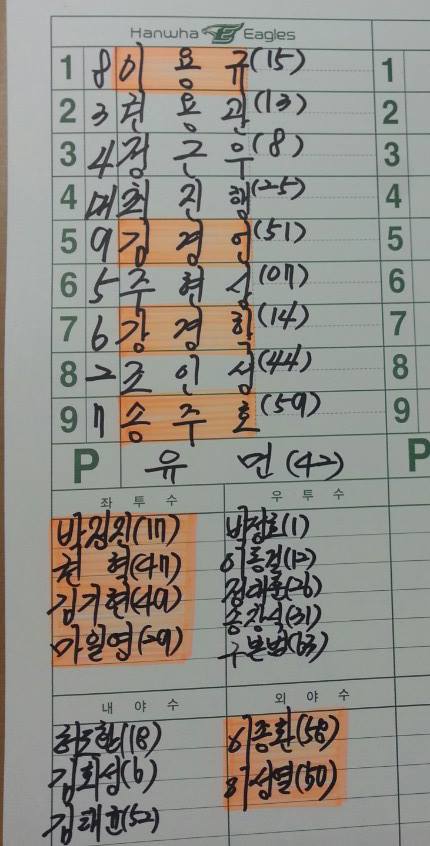 Hanwha Eagles
1 8 이용규(15) 1
2 3 권용관(13) 2
3 4 정근우(8) 3
4 DH 최진행(25) 4
5 9 김경언(51) 5
6 5 주현상(07) 6
7 6 강경학(14) 7
8 2 조인성(44) 8
9 7 송주호(59) 9
P 유먼(42) P
좌투수 우투수
박정진(17) 박정진(1)
권혁(47) 이동걸(12)
김기현(49) 정대훈(26)
마일영(29) 송창식(31)
구본범(63)
내야수 외야수
허도환(18) 이종환(58)
김회성(6) 이성열(50)
김태균(52)